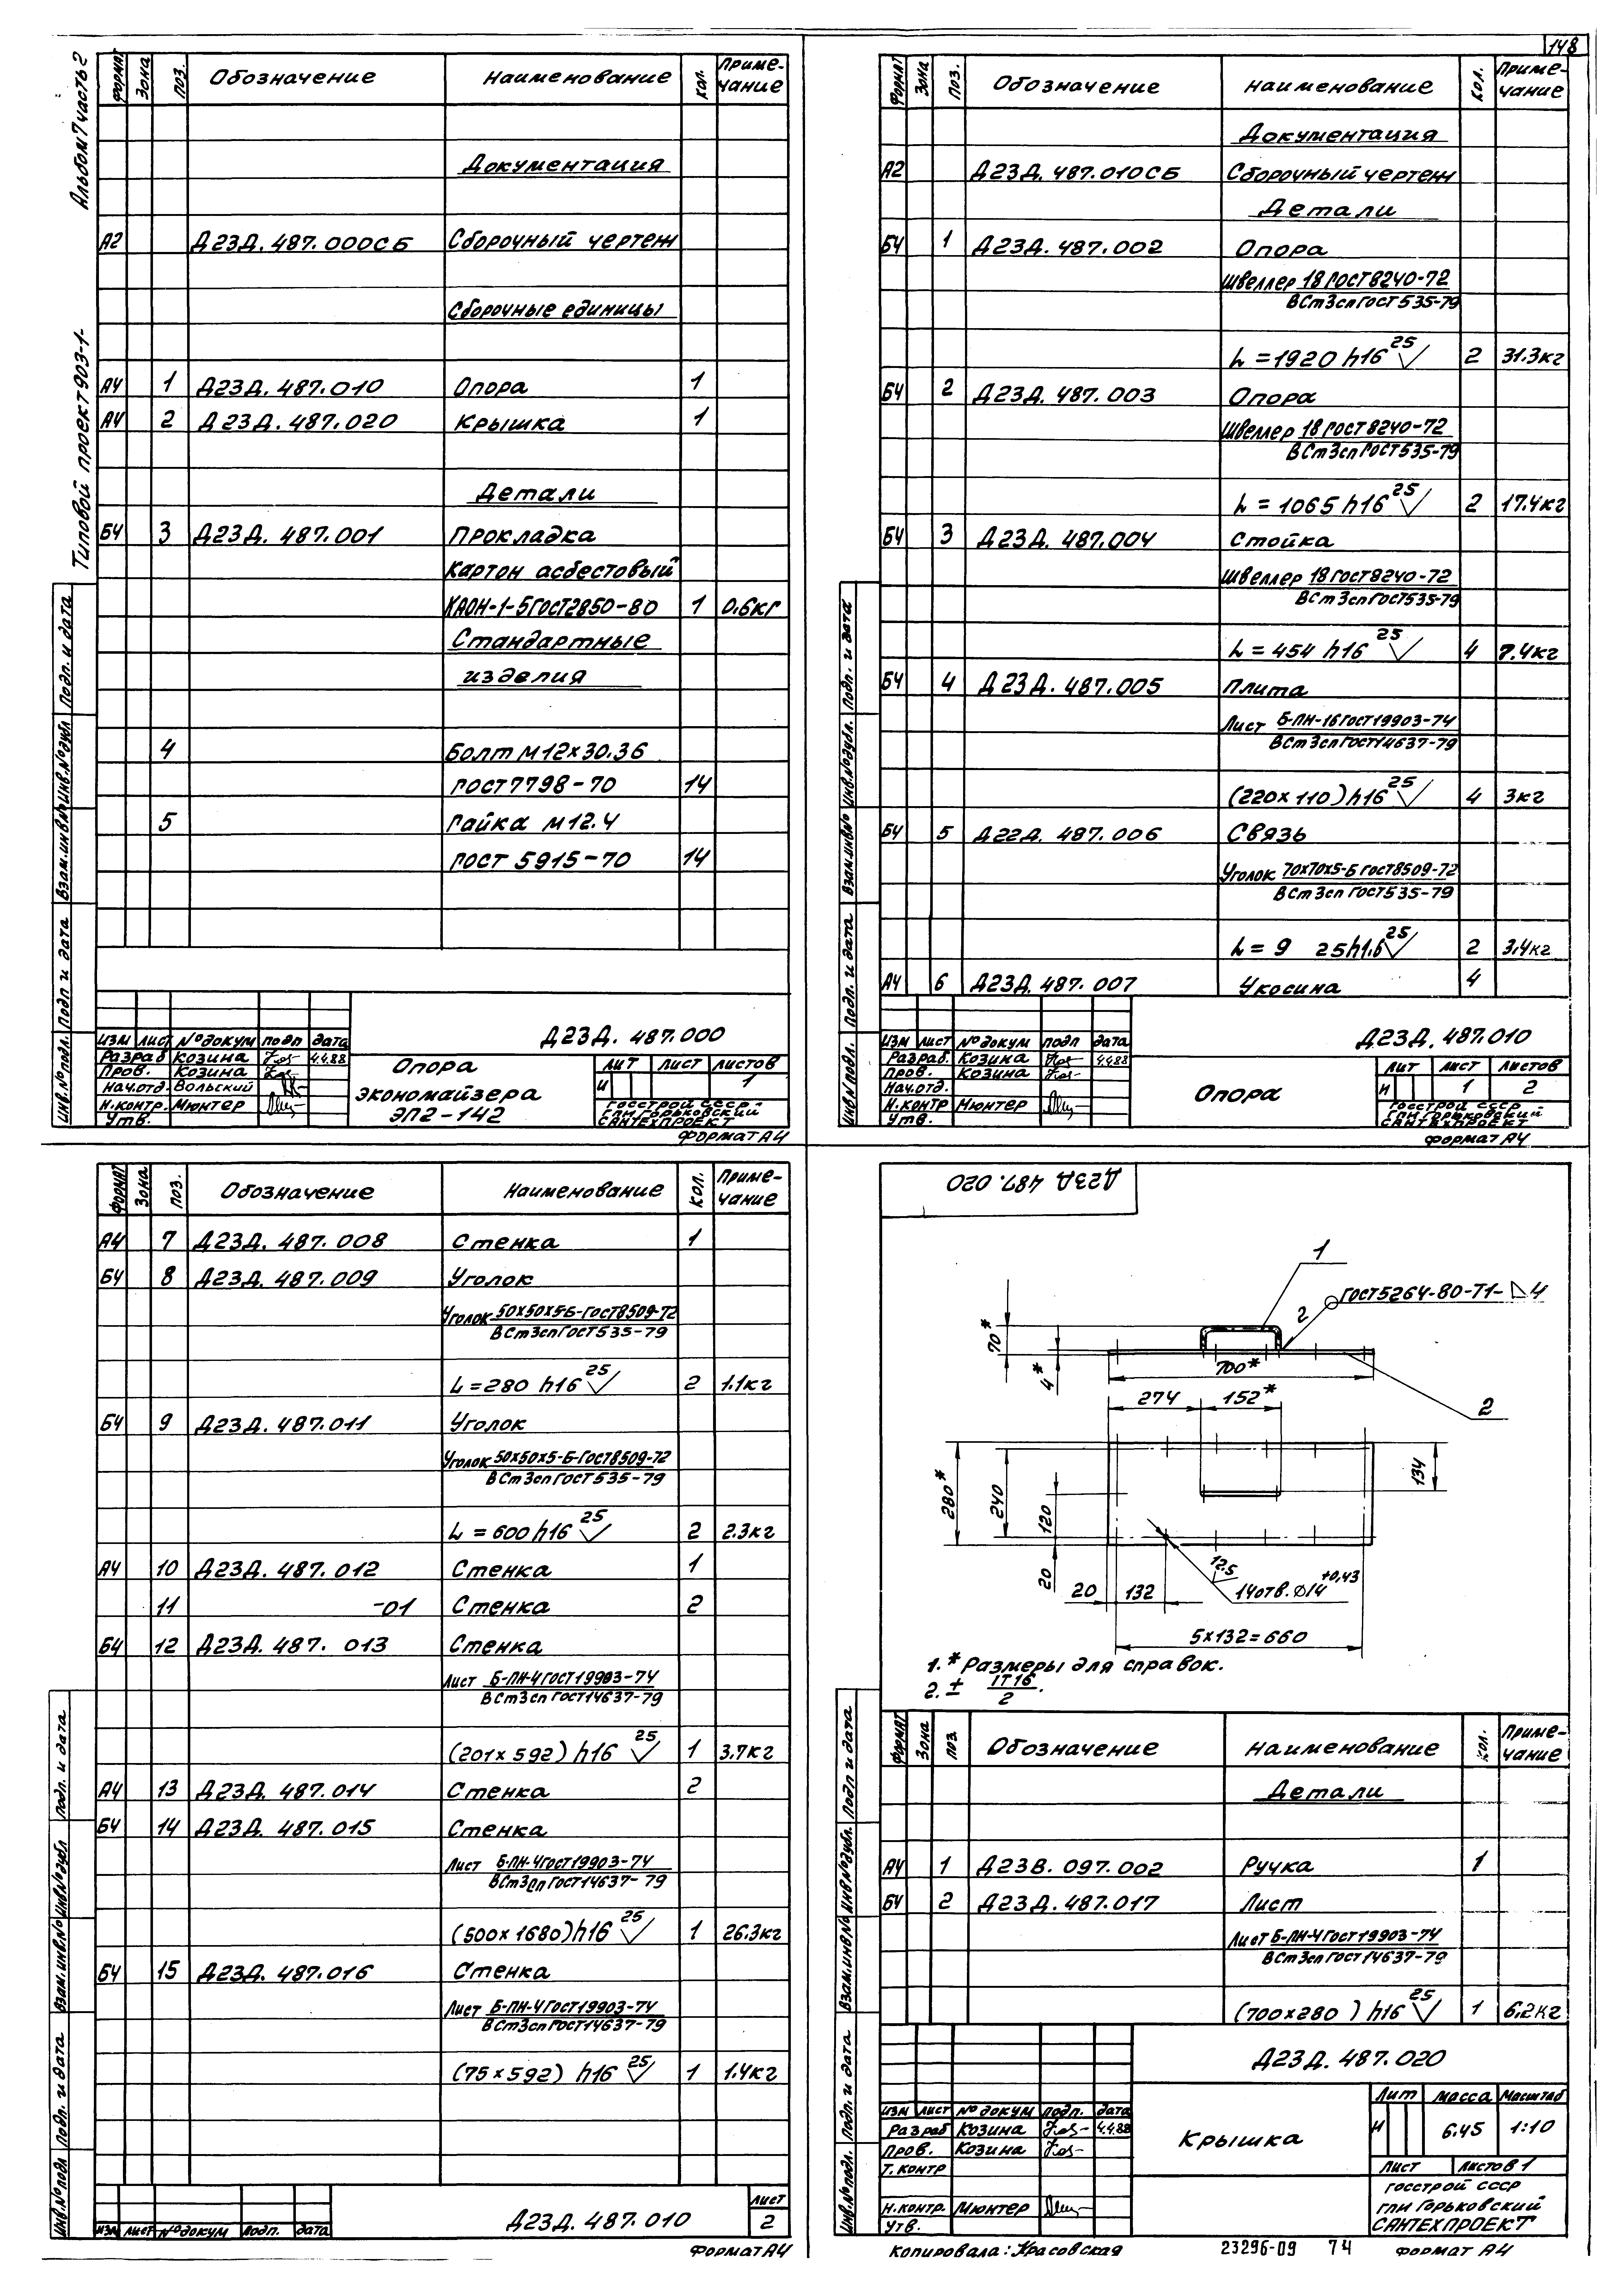 148
Альбом 7 часть 2
Типовой проект 903-1-
Формат Зона Поз. Обозначение Наименование Кол. Примечание
Документация
А2 Д23Д. 487.000СБ Сборочный чертеж
Сборочные единицы
А4 1 Д23Д. 487.010 Опора 1
А4 2 Д23Д. 487.020 Крышка 1
Детали
БЧ 3 Д23Д. 487.001 Прокладка
Картон асбестовый
КАОН-1-5 ГОСТ 2850-80 1 0.6кг
Стандартные
изделия
4 Болт М12х30.36
ГОСТ 7798-70 14
5 Гайка М12.4
ГОСТ 5915-70 14
Инв.№ подл. Подп. и дата Взам.инв.№ Инв.№ дубл. Подп. и дата
Д23Д. 487.000
Изм Лист № докум Подп Дата
Разраб Козина 4.4.88
Пров. Козина
Нач.отд. Вольский
Н.контр. Мюнтер
Утв.
Опора
экономайзера
ЭП2-142
Лит Лист Листов
И 1
Госстрой СССР
ГПИ Горьковский
САНТЕХПРОЕКТ
Формат А4
Формат Зона Поз. Обозначение Наименование Кол. Примечание
Документация
А2 Д23Д. 487.010СБ Сборочный чертеж
Детали
БЧ 1 Д23Д. 487.002 Опора
Швеллер 18 ГОСТ 8240-72
ВСт3сп ГОСТ 535-79
L=1920 h16 25 2 31.3кг
БЧ 2 Д23Д. 487.003 Опора
Швеллер 18 ГОСТ 8240-72
ВСт3сп ГОСТ 535-79
L=1065 h16 25 2 17.4кг
БЧ 3 Д23Д. 487.004 Стойка
Швеллер 18 ГОСТ 8240-72
ВСт3сп ГОСТ 535-79
L=454 h16 25 4 7.4кг
БЧ 4 Д23Д. 487.005 Плита
Лист Б-ПН-16 ГОСТ 19903-74
ВСт3сп ГОСТ 14637-79
(220х110) h16 25 4 3кг
БЧ 5 Д22Д. 487.006 Связь
Уголок 70х70х5-Б ГОСТ 8509-72
ВСт3сп ГОСТ 535-79
L=9 25h1.6 25 2 3.4кг
А4 6 Д23Д. 487.007 Укосина 4
Инв.№ подл. Подп. и дата Взам.инв.№ Инв.№ дубл. Подп. и дата
Д23Д. 487.010
Изм Лист № докум Подп Дата
Разраб. Козина 4.4.88
Пров. Козина
Нач.отд.
Н.контр Мюнтер
Утв.
Опора
Лит Лист Листов
И 1 2
Госстрой СССР
ГПИ Горьковский
САНТЕХПРОЕКТ
Формат А4
Формат Зона Поз. Обозначение Наименование Кол. Примечание
А4 7 Д23Д. 487.008 Стенка 1
БЧ 8 Д23Д. 487.009 Уголок
Уголок 50х50х5-Б-ГОСТ 8509-72
ВСт3сп ГОСТ 535-79
L=280 h16 25 2 1.1кг
БЧ 9 Д23Д. 487.011 Уголок
Уголок 50х50х5-Б-ГОСТ 8509-72
ВСт3сп ГОСТ 535-79
L=600 h16 25 2 2.3кг
А4 10 Д23Д. 487.012 Стенка 1
11 -01 Стенка 2
БЧ 12 Д23Д. 487.013 Стенка
Лист Б-ПН-4 ГОСТ 19903-74
ВСт3сп ГОСТ 14637-79
(201х592) h16 25 1 3.7кг
А4 13 Д23Д. 487.014 Стенка 2
БЧ 14 Д23Д. 487.015 Стенка
Лист Б-ПН-4 ГОСТ 19903-74
ВСт3сп ГОСТ 14637-79
(500х1680) h16 25 1 26.3кг
БЧ 15 Д23Д. 487.016 Стенка
Лист Б-ПН-4 ГОСТ 19903-74
ВСт3сп ГОСТ 14637-79
(75х592) h16 25 1 1.4кг
Инв.№ подл Подп. и дата Взам.инв.№ Инв.№ дубл Подп. и дата
Изм Лист № докум Подп. Дата
Д23Д. 487.010
Лист
2
Формат А4
Д23Д 487.020
1
2 ГОСТ 5264-80-Т1-◺4
70*
4*
700*
2
274 152*
280*
240
120
20
134
20 132
12.5
14 отв. ⌀14 +0,43
5х132=660
1.* Размеры для справок.
2. ± IT16/2.
Формат Зона Поз Обозначение Наименование Кол. Примечание
Детали
А4 1 Д23В. 097.002 Ручка 1
БЧ 2 Д23Д. 487.017 Лист
Лист Б-ПН-4 ГОСТ 19903-74
ВСт3сп ГОСТ 14637-79
(700х280) h16 25 1 6.2кг
Инв.№ подл. Подп. и дата Взам.инв.№ Инв.№ дубл. Подп и дата
Д23Д. 487.020
Изм Лист № докум Подп. Дата
Разраб Козина 4.4.88
Пров. Козина
Т.контр
Н.контр. Мюнтер
Утв.
Крышка
Лит Масса Масштаб
И 6.45 1:10
Лист Листов 1
Госстрой СССР
ГПИ Горьковский
САНТЕХПРОЕКТ
Копировала: Красовская 23296-09 74 Формат А4